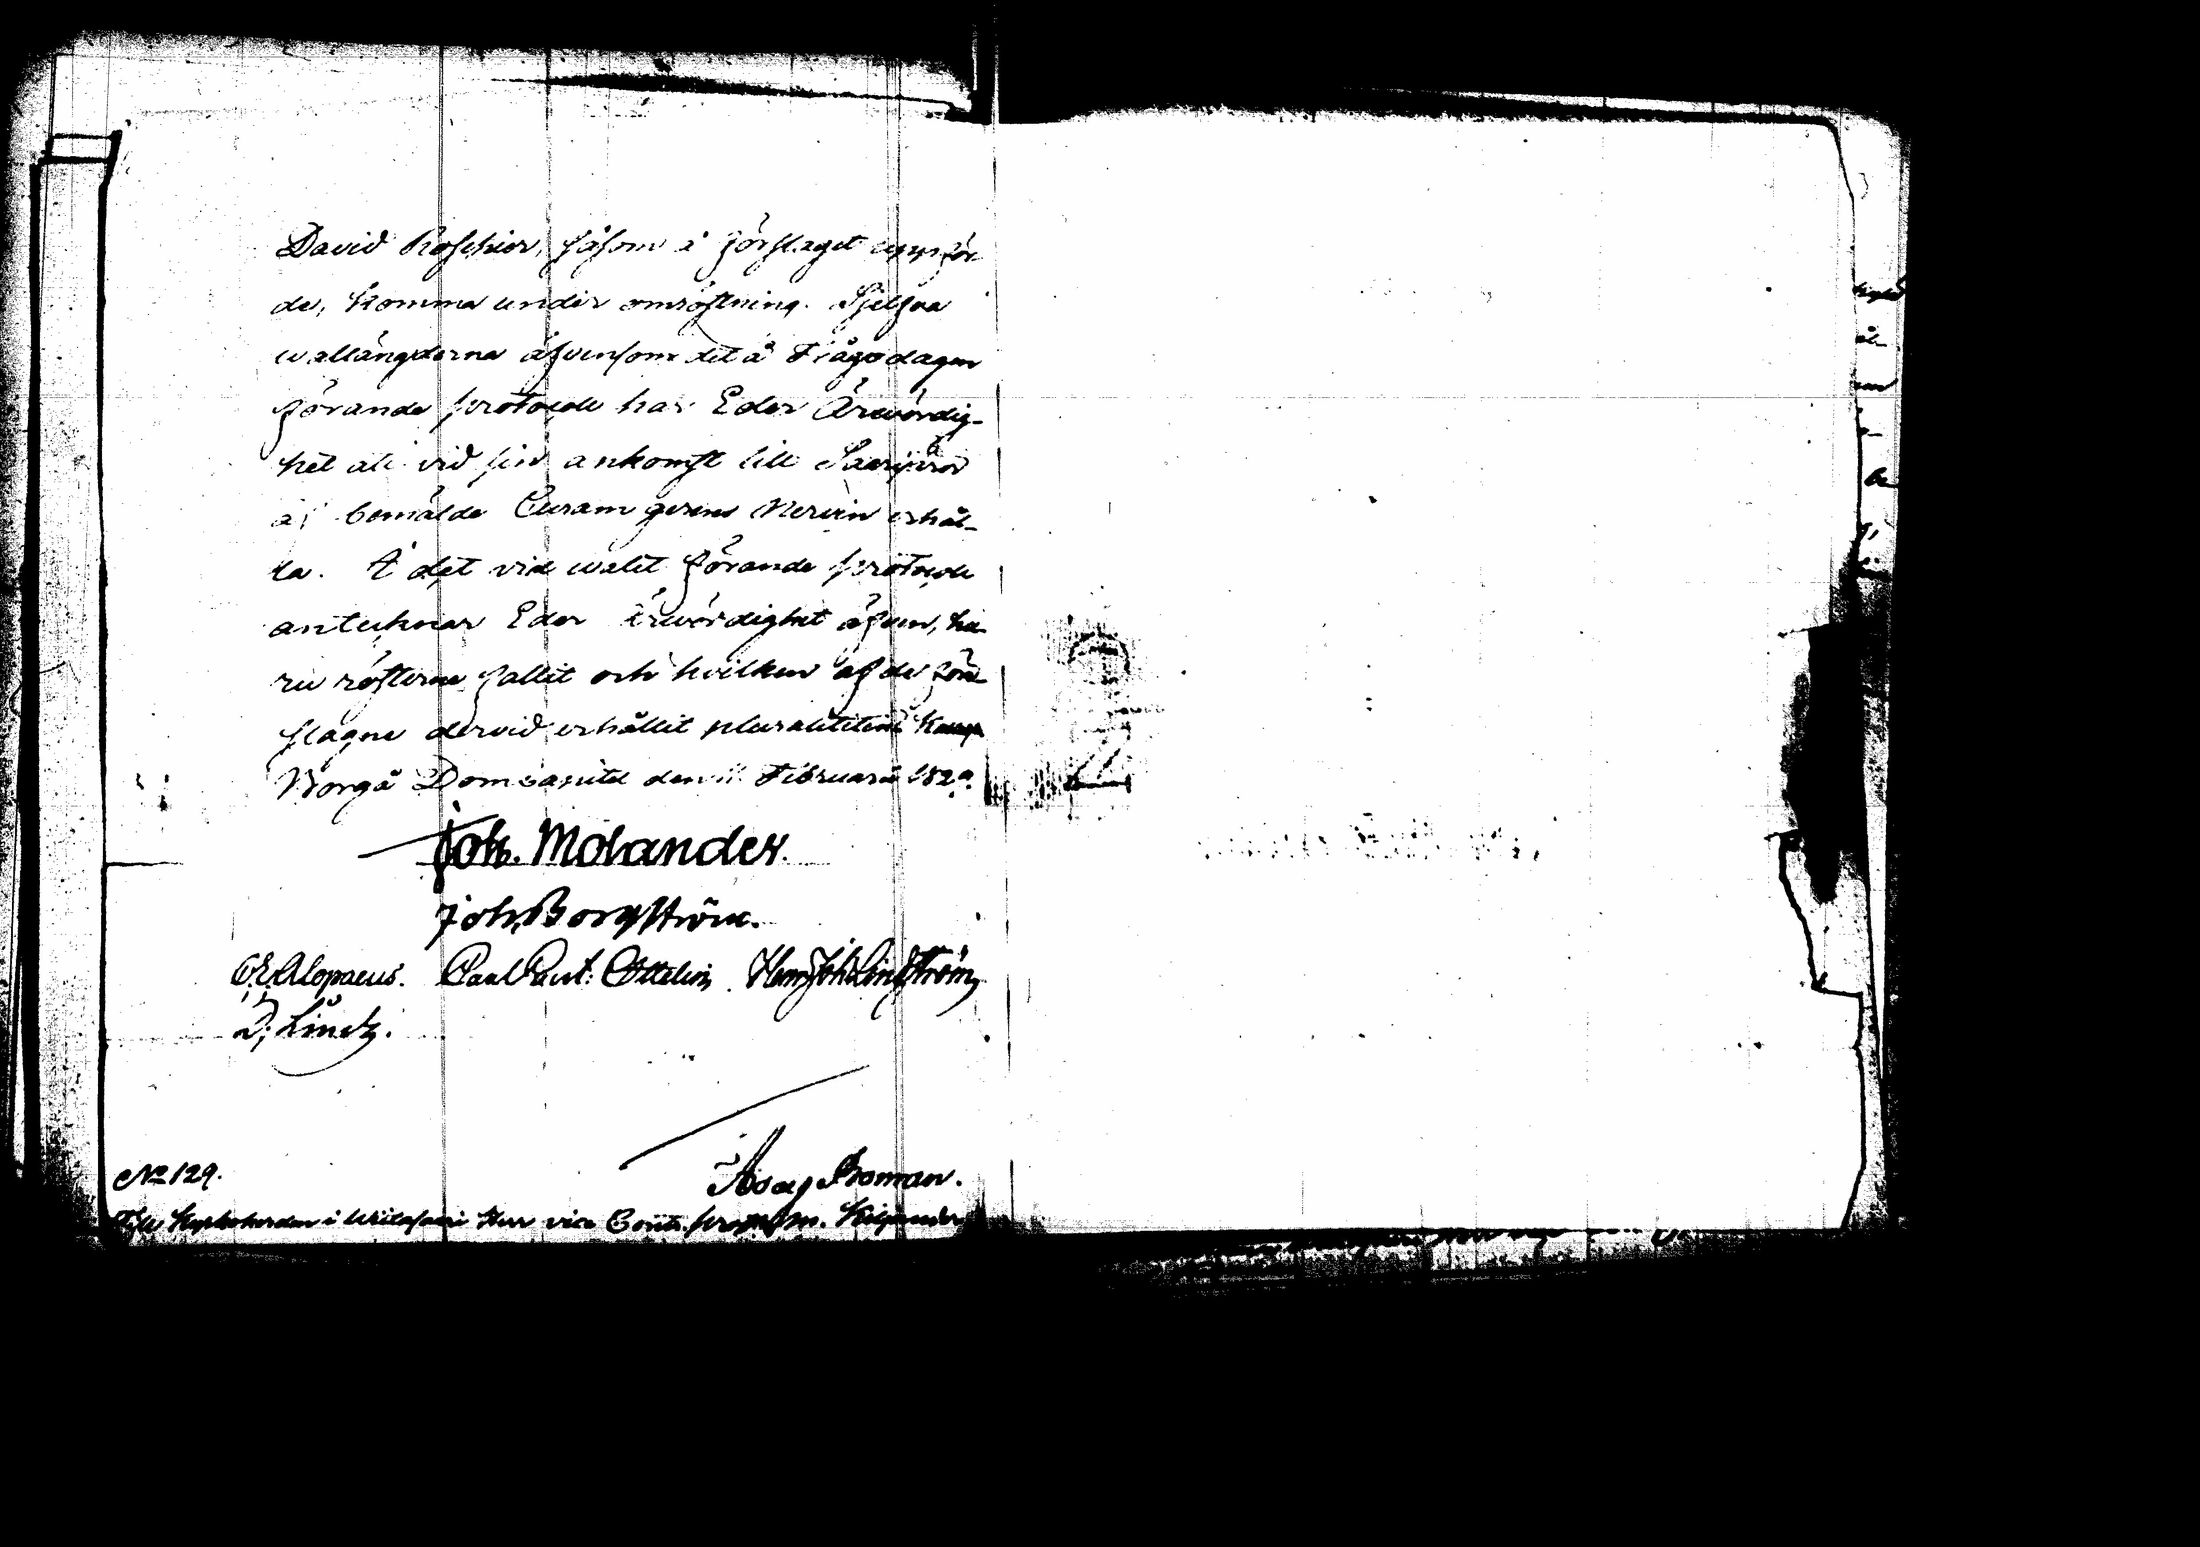 David Roschier, såsom å förslaget uppför-
de, komma under omröstning. Sjelfva
wallängderna äfvensom det å Frågodagen
förande protocoll har Eder Ärevördig-
het att vid sin ankomst till Saarijärvi
af bemälde Curam gerens Nervin erhål-
la. I det vid valet förande protocoll
antecknar Eder Ärevördighet äfven, hu-
ru rösterne fallit och hvilken af de före-
slagne dervid erhållit pluraliteten
Borgå Domcapitel den 11 Februarii 1829.
Joh. Molander.
Joh. Borgström.
C. E. Alopaeus. Paul Ottelin Henr. Joh. Lindström
D. Lindh.
Boman.
No 129.
Till Kyrkoherden i Wiitasaari Herr vice Contr. prosten m. m.